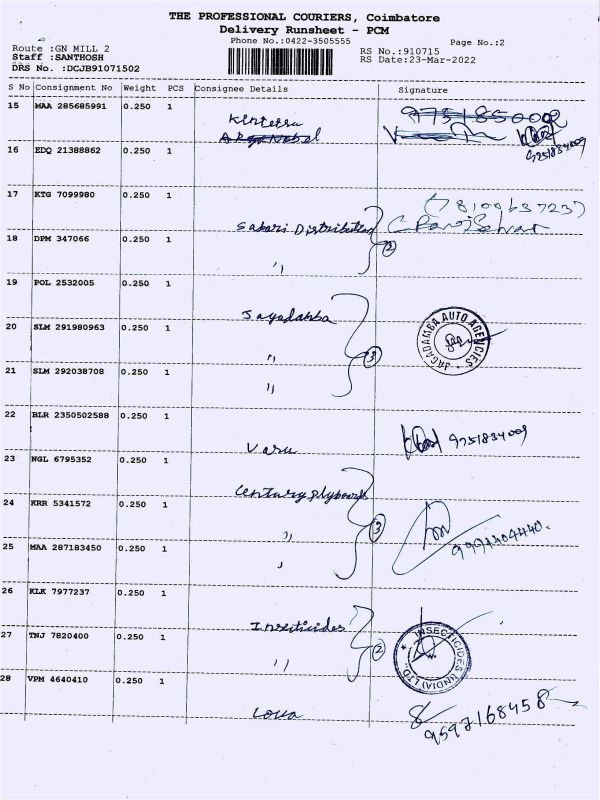 THE PROFESSIONAL COURIERS, Coimbatore
Delivery Runsheet - PCM
Phone No.:0422-3505555
Page No.:2
Route :GN MILL 2
RS No.:910715
Staff :SANTHOSH
RS Date:23-Mar-2022
DRS No. :DCJB91071502
S No Consignment No Weight PCS Consignee Details Signature
15 MAA 285685991 0.250 1
9751834009
16 EDQ 21388862 0.250 1
17 KTG 7099980 0.250 1
Sabari Distribution
18 DPM 347066 0.250 1
〃
2
19 POL 2532005 0.250 1
20 SLM 291980963 0.250 1
〃
3
JAGADAMBA AUTO AGENCIES
21 SLM 292038708 0.250 1
〃
22 BLR 2350502588 0.250 1
Vasu
9751834009
23 NGL 6795352 0.250 1
Century plyboards
24 KRR 5341572 0.250 1
〃
3
25 MAA 287183450 0.250 1
26 KLK 7977237 0.250 1
Insecticides
27 TNJ 7820400 0.250 1
〃
2
INSECTICIDES (INDIA) LTD.
28 VPM 4640410 0.250 1
9597168458